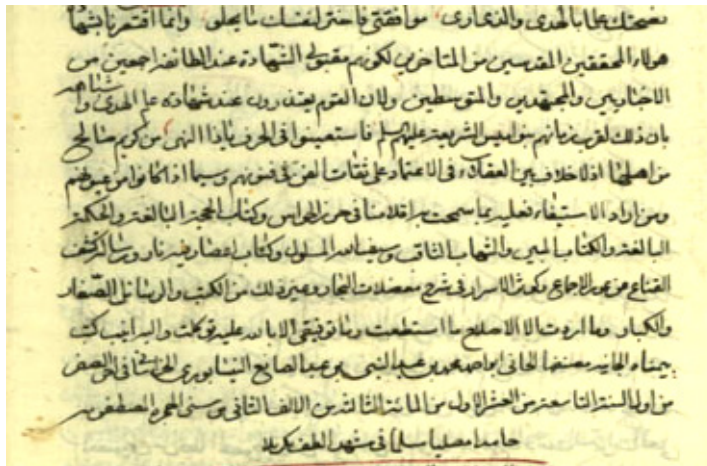 نصحتك علما بالهدى والذي ارى موافقتي فاختر لنفسك ما يحلو وانما اقتصرنا بشهادة
هولاء المحققين المقدسين من المتاخرين لكونهم مقبولي الشهادة عند الطائفة اجمعين من
الاخباريين والمجتهدين والمتوسطين ولان القوم يعتذرون عند شهادة علم الهدى و
بان ذلك لقرب زمانهم نواميس الشريعة عليهم سلم فاستعينوا في الحرف يا ذا النهى من كريم صالح
من اهلها اذ لا خلاف بين العقلاء في الاعتماد على ثقات الفن في فنونهم وسيما اذا كانوا من
ومن اراد الاستيفاء فعليه بما سمحت به اقلامنا في حرز الحواس وكتاب الحجة البالغة والحكمة
البالغة والكتاب المبين والشهاب الثاقب وسيف الله المسلول وكتاب اعصار فيه نار ورسالة كشف
القناع عن عور الاجماع وكوثر الاسرار في شرح معضلات وغير ذلك من الكتب والرسائل الصغار
والكبار وما اردت الا الاصلاح ما استطعت وما توفيقي الا بالله عليه توكلت واليه انيب كتب
بيمناه الجانية مصنفها الجاني ابو احمد محمد بن عبد النبي بن عبد الصانع النيسابوري في اخر الصفر
من اول السنة التاسعة من العشر الاول من المائة الثالثة من الالف الثاني من سني الهجرة المصطفوية
حامدا مصليا مسلما في مشهد الطف كربلا